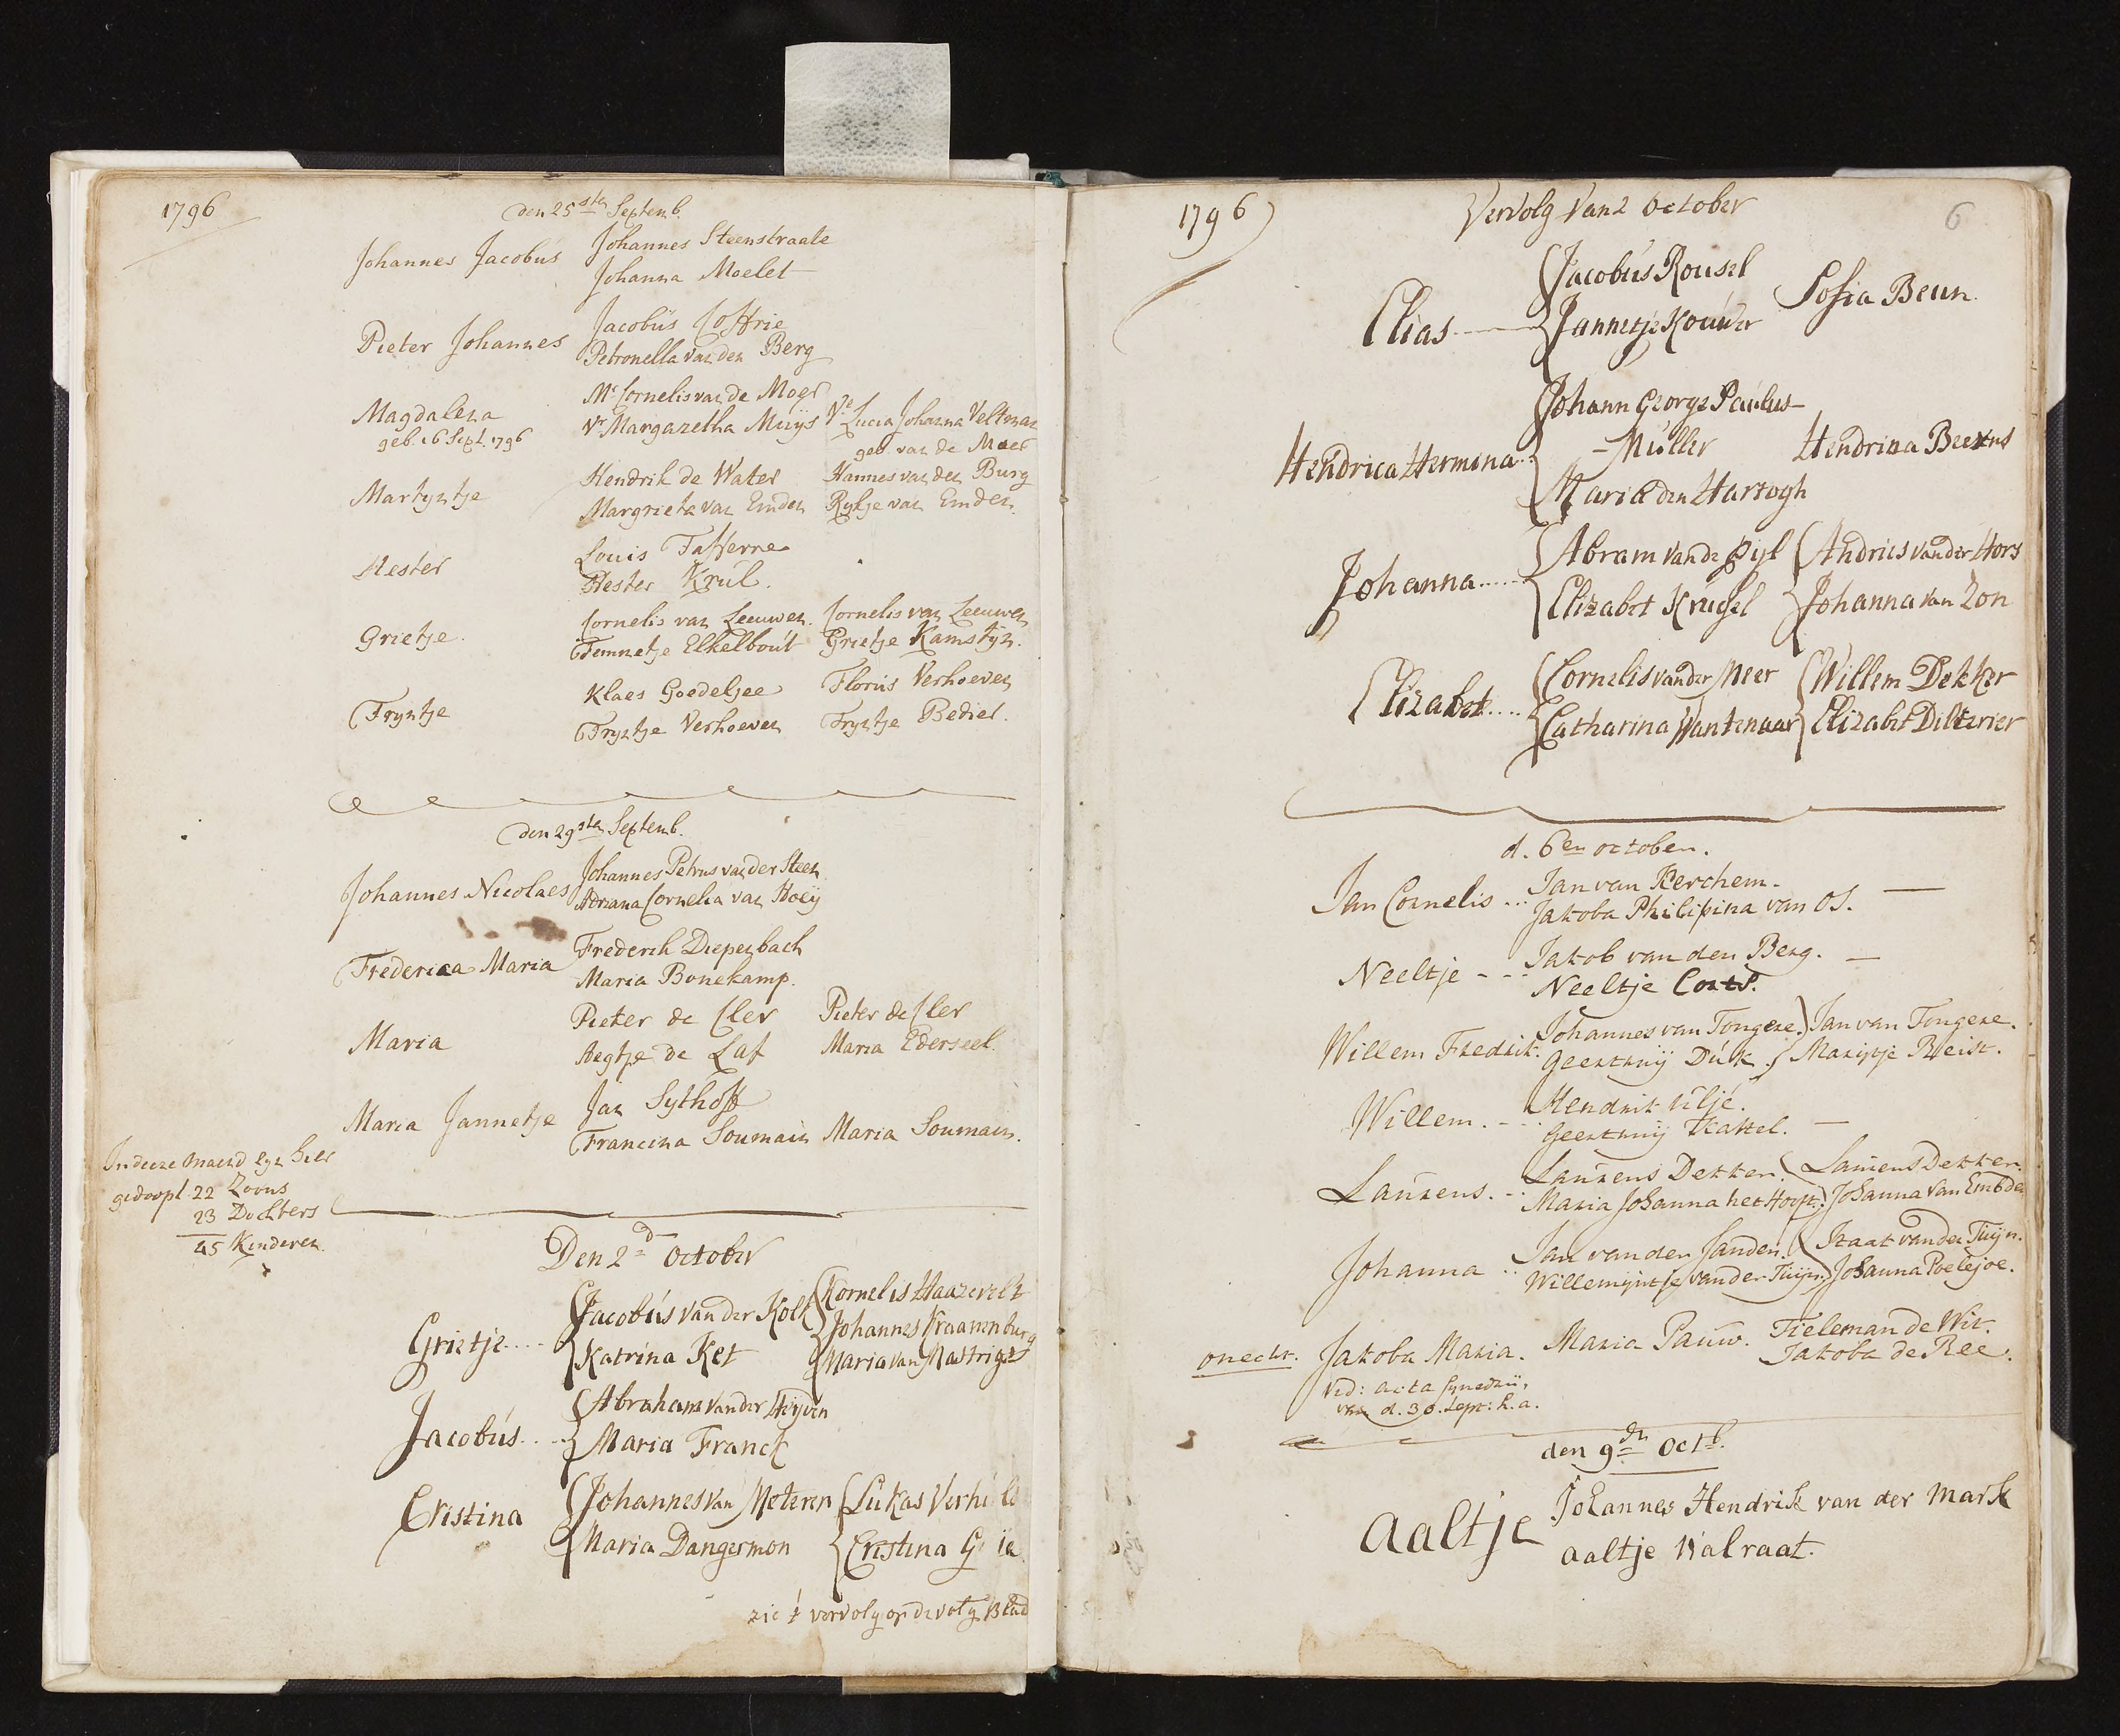 1796
den 25sten Septemb.
Johannes Jacobus Johannes Steenstraale
Johanna Moelet
Pieter Johannes Jacobus Coffrie
Petronella van den Berg
Magdalena Mr Cornelis van de Moer
geb. 16 Sept. 1796 Vr Margaretha Muijs Ve Lucia Johanna Veltman
geb. van de Moer
Martyntje Hendrik de Water Hannes van den Burg
Margrieta van Emden Rykje van Emden.
Hester Louis Tafferne
Hester Krul.
Grietje. Cornelis van Leeuwen. Cornelis van Leeuwen
Jannetje Elkelbout Grietje Kamstyn.
Tryntje Klaes Goedeljee Floris Verhoeven
Tryntje Verhoeven Tryntje Bedier.
den 29sten Septemb.
Johannes Nicolaes Johannes Petrus van der Steen
Adriana Cornelia van Hoeij
Frederica Maria Frederik Diepenbach
Maria Bonekamp.
Maria Pieter de Cler Pieter de Cler
Aegtje de Laf Maria Ederseel.
Maria Jannetje Jan Sythoff
Francina Soumain Maria Soumain.
In deeze maend zyn hier
gedoopt 22 Zoons
23 Dochters
45 Kinderen.
Den 2d October
Grietje.... Jacobus van der Kolk Kornelis Haazevelt
Katrina Ket Johannes Kraamenburg
Maria van Mastrigt
Jacobus.... Abraham van der Heyden
Maria Franck
Cristina Johannes van Meteren Lukas
Maria Dangermon Cristina
zie 't vervolg op de volg Blad
1796
Vervolg van 2 October
6
Elias Jacobus Rousel
Jannetje Kouwer Sofia Beun.
Hendrica Hermina Johann George Paulus
-Müller Hendrina
Maria den Hartogh
Johanna...... Abram van de Pyl Andries van der Hors
Elizabet Krugel Johanna van Zon
Elizabet.... Cornelis van der Meer Willem Dekker
Catharina Wantenaar Elizabet
d. 6en october.
Jan Cornelis ... Jan van Kerchem.
Jakoba Philipina van Os.
Neeltje --- Jakob van den Berg.
Neeltje
Willem Fredrik. Johannes van Tongere. Jan van Tongere.
Geertruij Duk. Marijtje Reist.
Willem. -- Hendrik Uiljé.
Geertruij Kattel.
Laurens. -- Laurens Dekker. Laurens Dekker.
Maria Johanna het Hooft. Johanna van Embden
Johanna .. Jan van der Sanden. Staat van der Tuijn.
Willemijntje van der Tuijn. Johanna Poelejoe.
onecht. Jakoba Maria. Maria Pauw. Tieleman de Wit.
Jakoba de Ree.
Vid: acta synedrii,
van d. 30. Sept: h. a.
den 9dn Octb.
Aaltje Johannes Hendrik van der Mark
Aaltje Walraat.